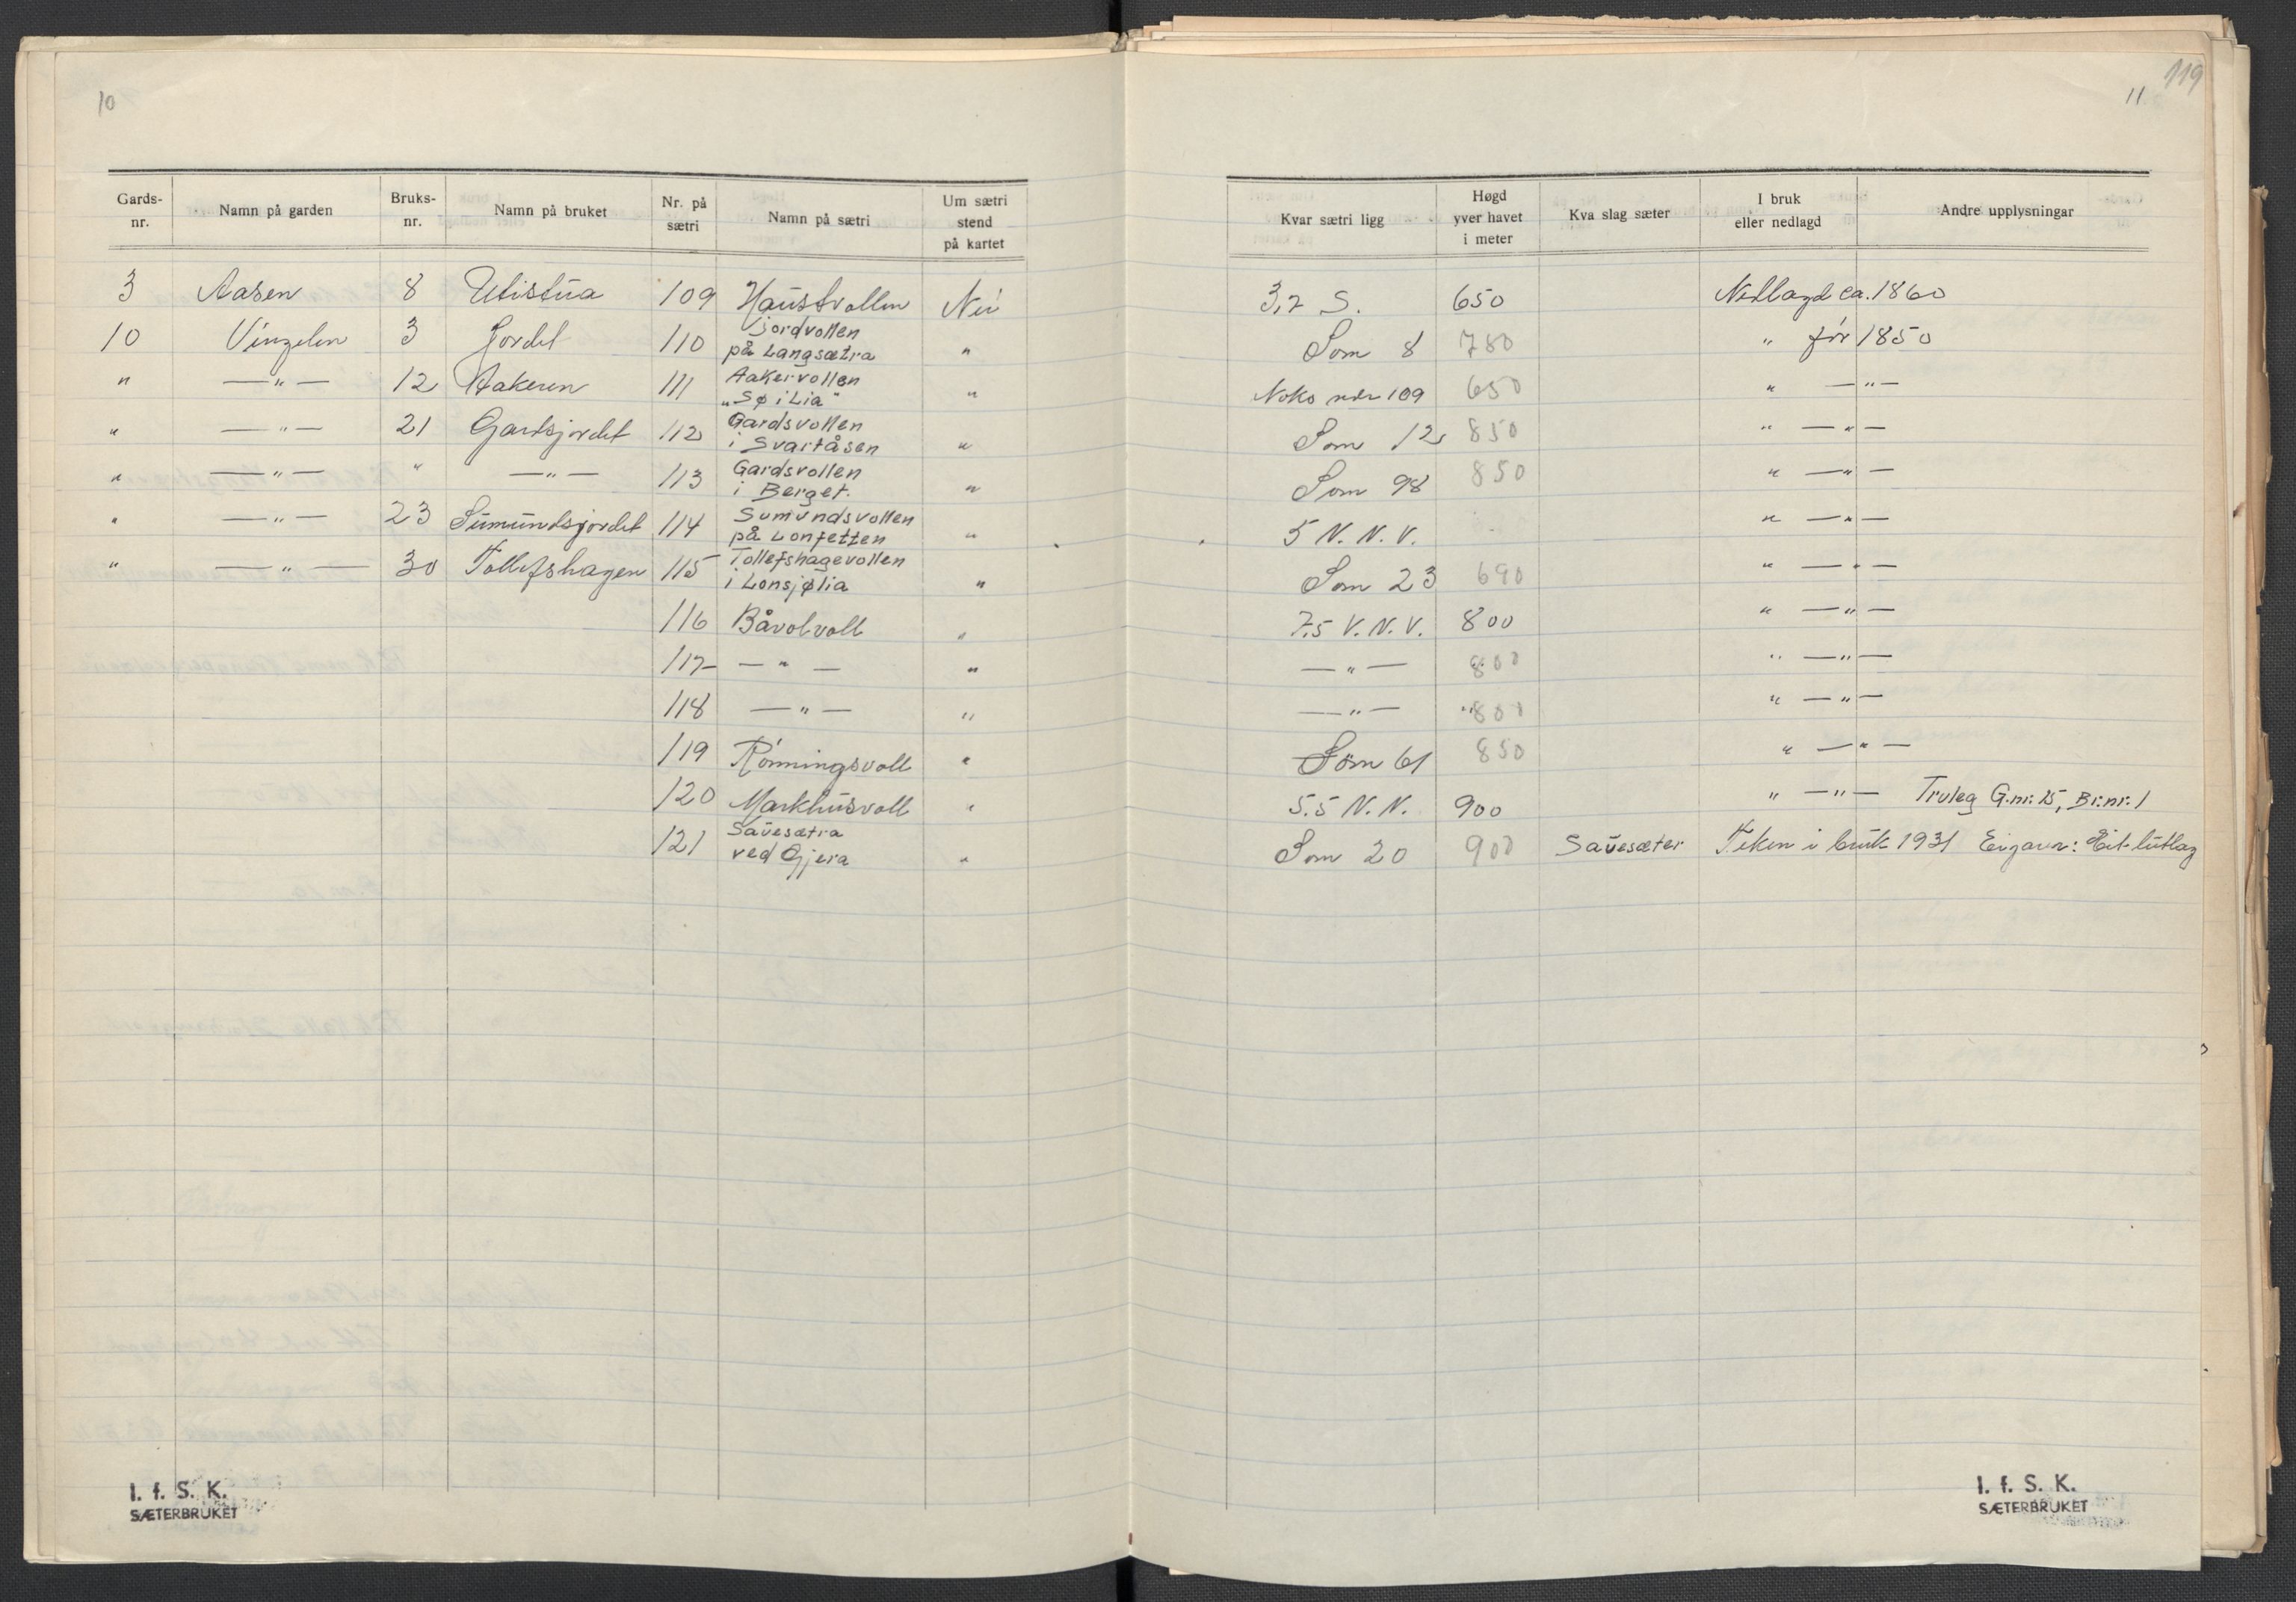 10
Gards-nr. Namn på garden Bruks-nr. Namn på bruket Nr. på sætri Namn på sætri Um sætri stend på kartet
3 Aasen 8 Utistua 109 Haustvollen Nei
10 Vingelen 3 Jordet 110 Jordvollen på Langsætra "
" — " — 12 Aakeren 111 Aakervollen „Sø i Lia" "
" — " — 21 Gardsjordet 112 Gardsvollen i Svartåsen "
" — " — " — " — 113 Gardsvollen i Berget. "
" — " — 23 Sumundsjordet 114 Sumundsvollen på Lonfetten "
" — " — 30 Tollefshagen 115 Tollefshagevollen i Lonsjølia "
116 Båvolvoll "
117 — " — "
118 — " — "
119 Rønningsvoll "
120 Markhusvoll "
121 Sauesætra ved Gjera "
I. f. S. K.
SÆTERBRUKET
119
11
Kvar sætri ligg Høgd yver havet i meter Kva slag sæter I bruk eller nedlagd Andre upplysningar
3,2 S. 650 Nedlagd ca. 1860
Som 8 780 " før 1850
Noko nær 109 650 " — " —
Som 12 850 " — " —
Som 98 850 " — " —
5 N. N. V. " — " —
Som 23 690 " — " —
7,5 V. N. V. 800 " — " —
— " — 800 " — " —
— " — 800 " — " —
Som 61 850 " — " —
5.5 N. N. 900 " — " — Truleg G.nr. 15, Br.nr. 1
Som 20 900 Sauesæter Teken i bruk 1931 Eigarar: Eit lutlag
I. f. S. K.
SÆTERBRUKET